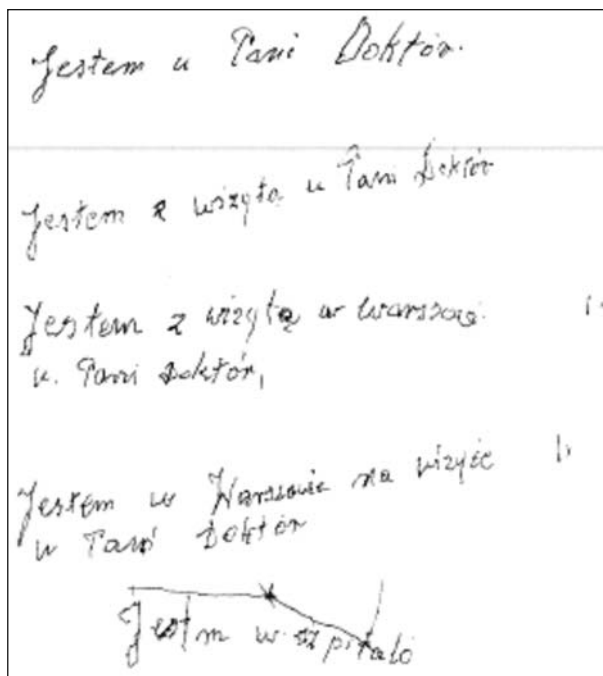 Jestem u Pani Doktór.
Jestem z wizyta u Pani Doktór
Jestem z wizytą w Warszawie
u. Pani Doktór,
Jestem w Warszawie na wizyic
u Pani Doktór
Jestm w szpitalo